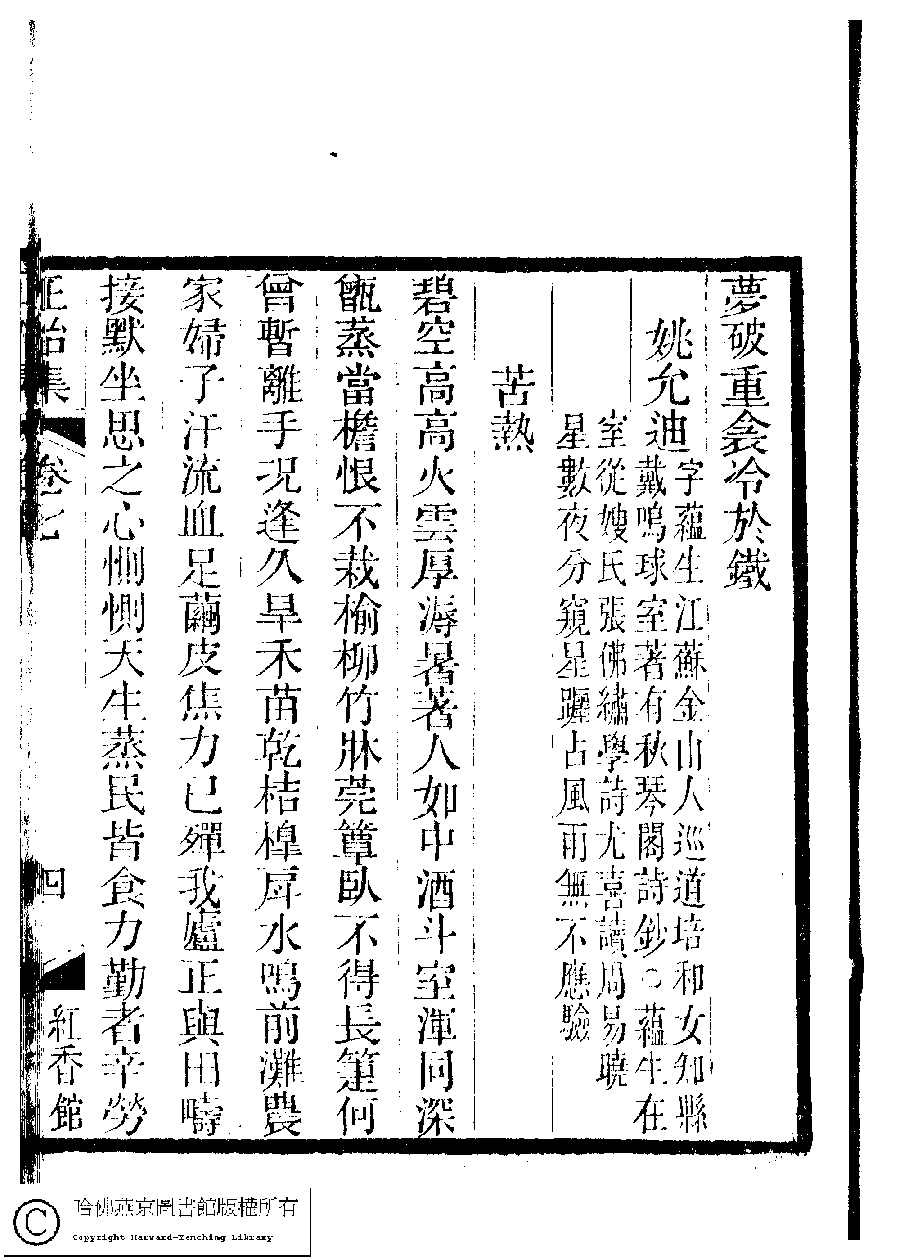 夢破重衾冷於鐵
姚允迪
字蘊生江蘇金山人巡道培和女知縣
戴鳴球室著有秋琴閣詩鈔○蘊生在
室從嫂氏張佛繡學詩尤喜讀周易曉
星數夜分窺星躔占風雨無不應驗
苦熱
碧空高高火雲厚溽暑著人如中酒斗室渾同深
甑蒸當檐恨不栽榆柳竹牀莞簟臥不得長箑何
曾暫離手況逢久旱禾苗乾桔槹戽水鳴前灘農
家婦子汗流血足繭皮焦力已殫我廬正與田疇
接默坐思之心惻惻天生蒸民皆食力勤者辛勞
正始集
卷七
四
紅香館
哈佛燕京圖書館版權所有
Copyright Harvard-Yenching Library